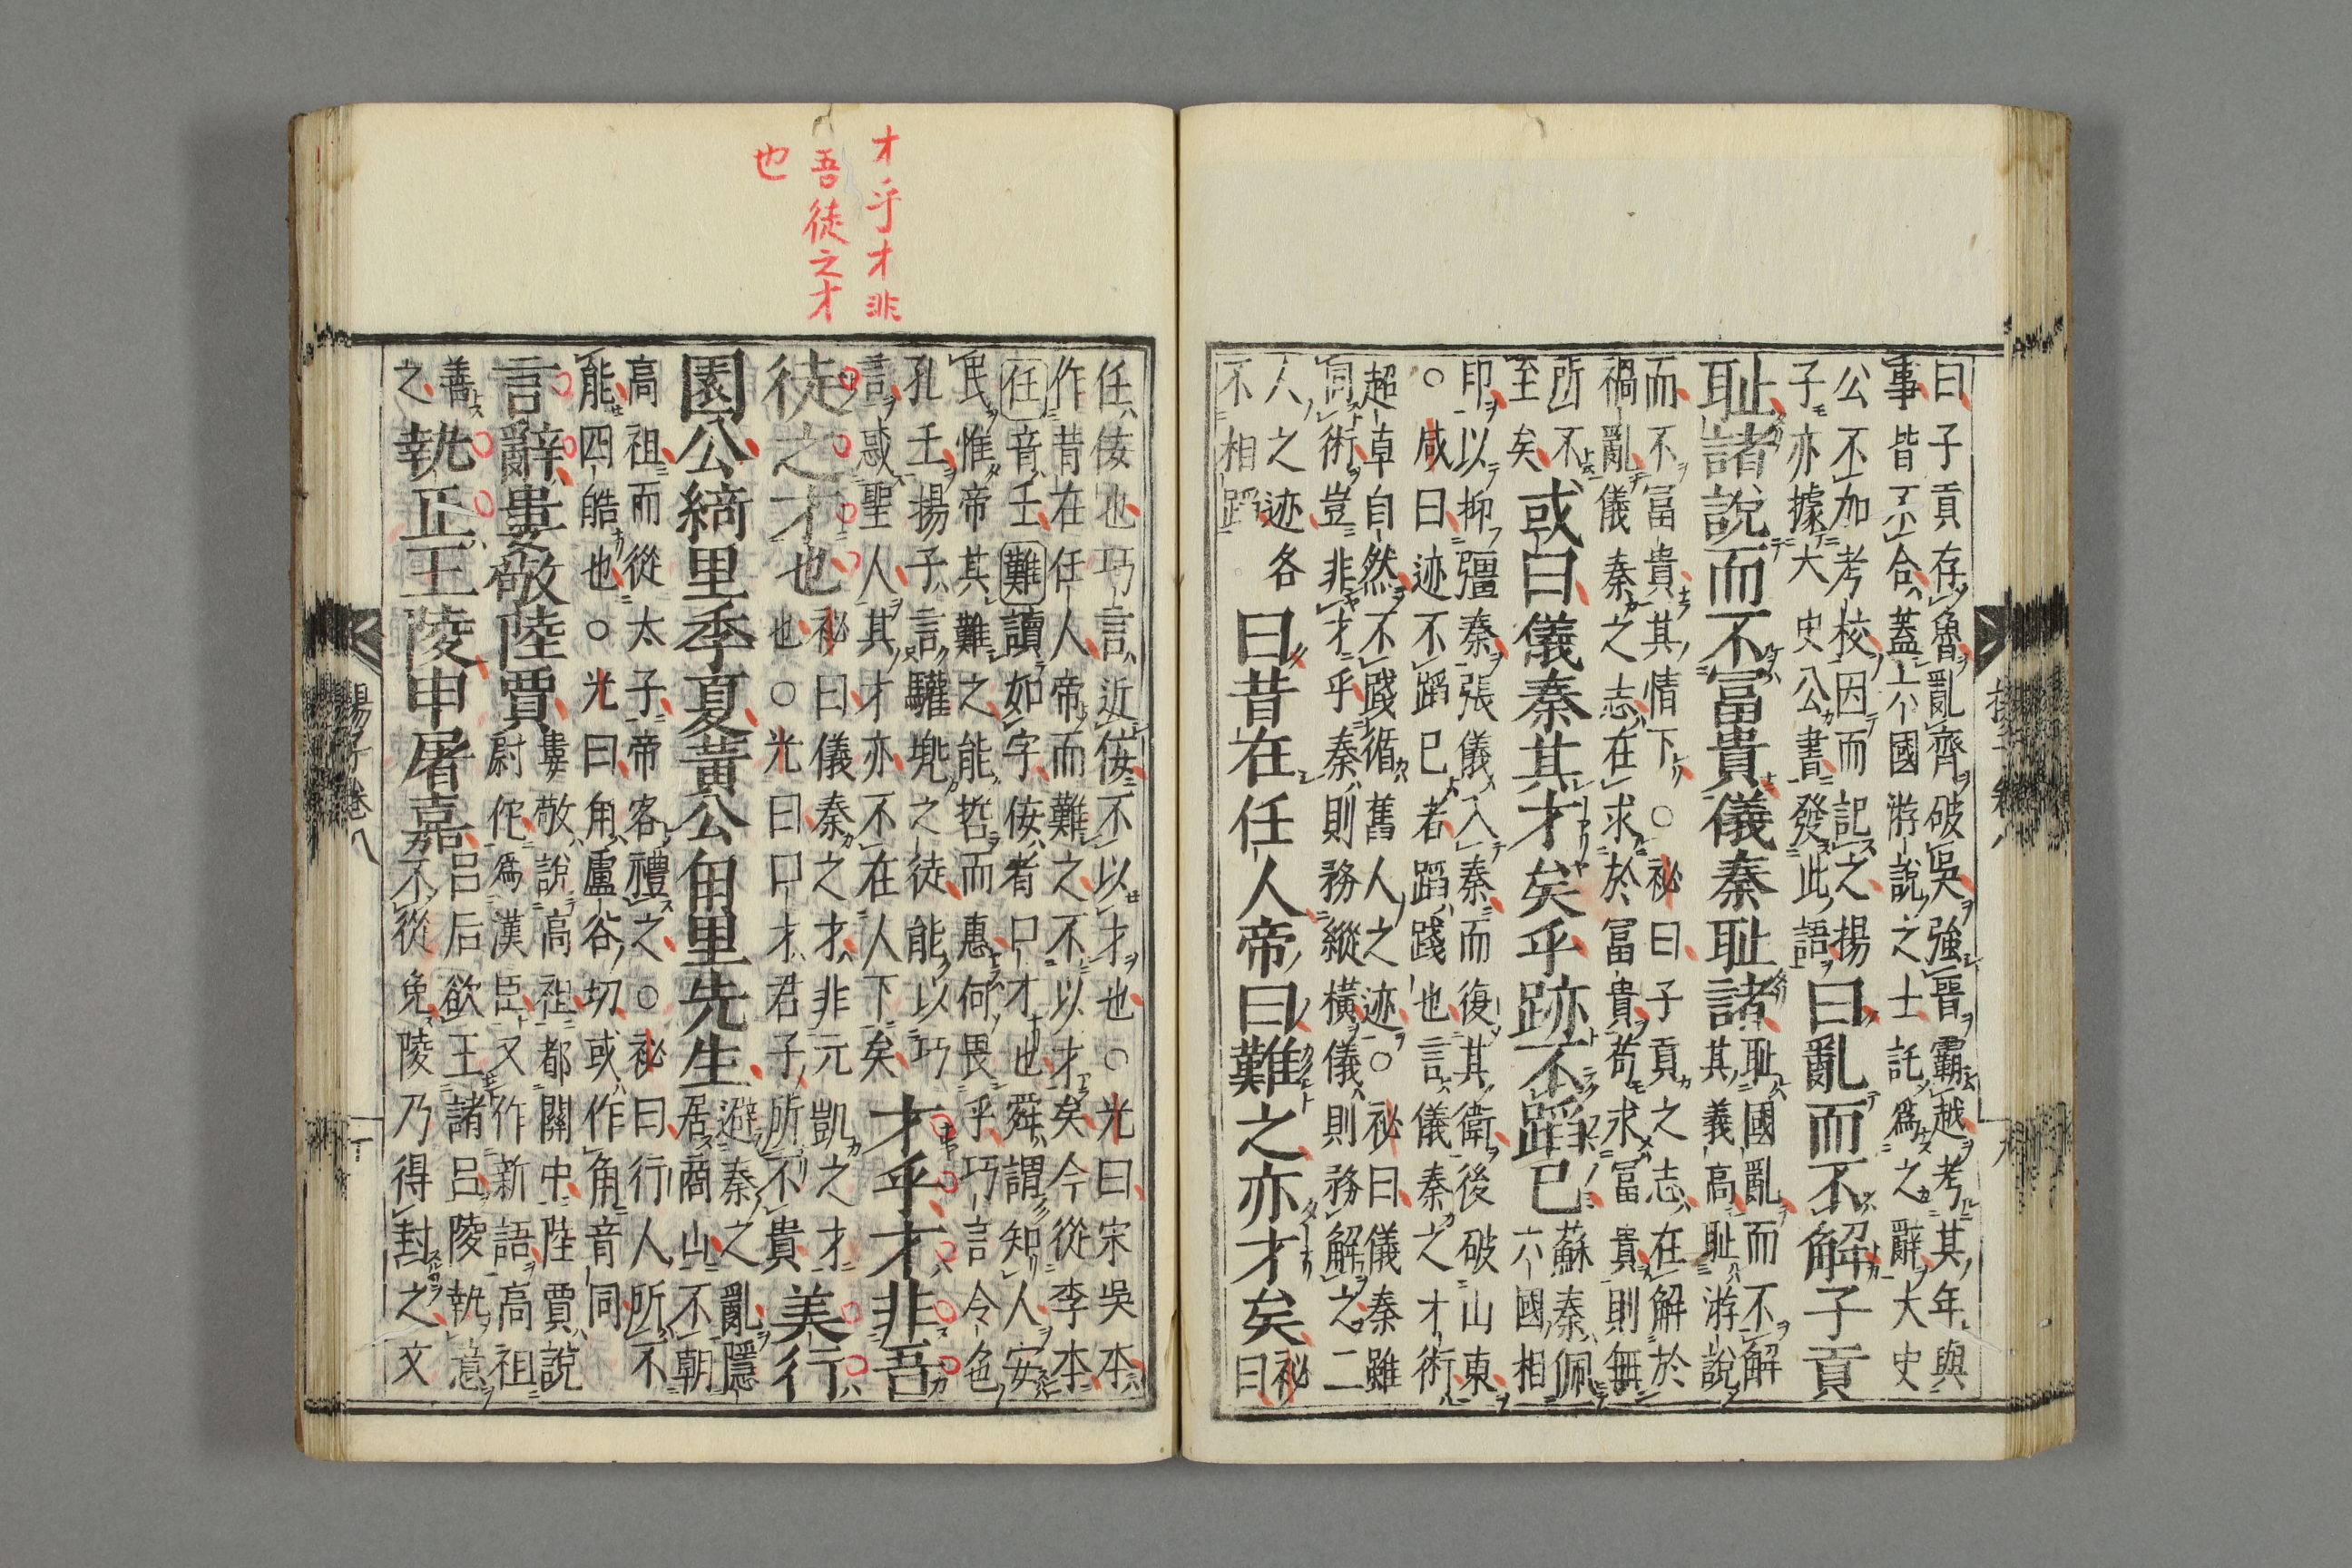 曰子貢存魯亂齊破吳強晉霸越考其年與
事皆不合蓋六國游說之士託爲之辭大史
公不加考校因而記之揚
子亦據大史公書發此語
曰亂而不解子貢
耻諸說而不冨貴儀秦耻諸
耻國亂而不解
其義高耻游說
而不冨貴其情下○祕曰子貢之志在解於
禍亂儀秦之志在求於冨貴苟求冨貴則無
所不
至矣
或曰儀秦其才矣乎跡不蹈已
蘇秦佩
六國相
印以抑彊秦張儀入秦而復其衛後破山東
○咸曰迹不蹈已者蹈踐也言儀秦之才術
超卓自然不踐循舊人之迹○祕曰儀秦雖
同術豈非才乎秦則務縱橫儀則務解之二
人之迹各
不相蹈
曰昔在任人帝曰難之亦才矣
祕
曰
才乎才非
吾徒之才
也
任佞也巧言近佞不以才也○光曰宋吳本
作昔在任人帝而難之不以才矣今從李本
任音壬難讀如字佞者口才也舜謂知人安
民惟帝其難之能哲而惠何畏乎巧言令色
孔壬揚子言驩兠之徒能以巧
言惑聖人其才亦不在人下矣
才乎才非吾
徒之才也
祕曰儀秦之才非元凱之才
也○光曰口才君子所不貴
美行
園公綺里季夏黃公甪里先生
避秦之亂隱
居商山不朝
高祖而從太子帝客禮之○祕曰行人所不
能四皓也○光曰角盧谷切或作角音同
言辭婁敬陸賈
婁敬說高祖都關中陸賈說
尉佗爲漢臣又作新語高祖
善
之
執正王陵申屠嘉
呂后欲王諸呂陵執意
不從免陵乃得封之文
揚子卷八